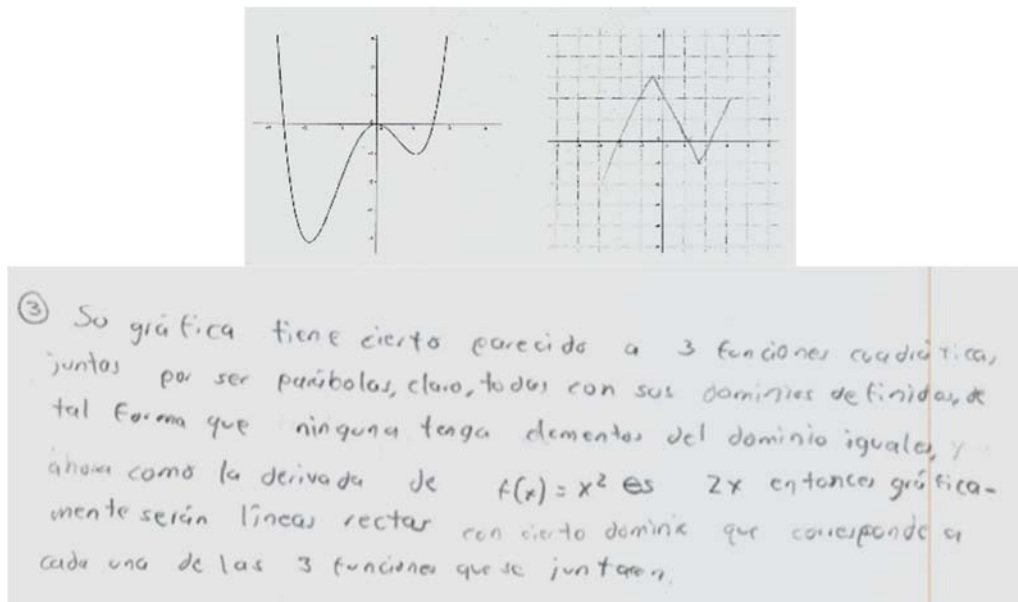 ③ Su gráfica tiene cierto parecido a 3 funciones cuadráticas
juntas por ser parábolas, claro, todas con sus dominios definidos, de
tal forma que ninguna tenga elementos del dominio iguales, y
ahora como la derivada de f(x) = x² es 2x entonces gráfica-
mente serán líneas rectas con cierto dominio que corresponde a
cada una de las 3 funciones que se juntaron.